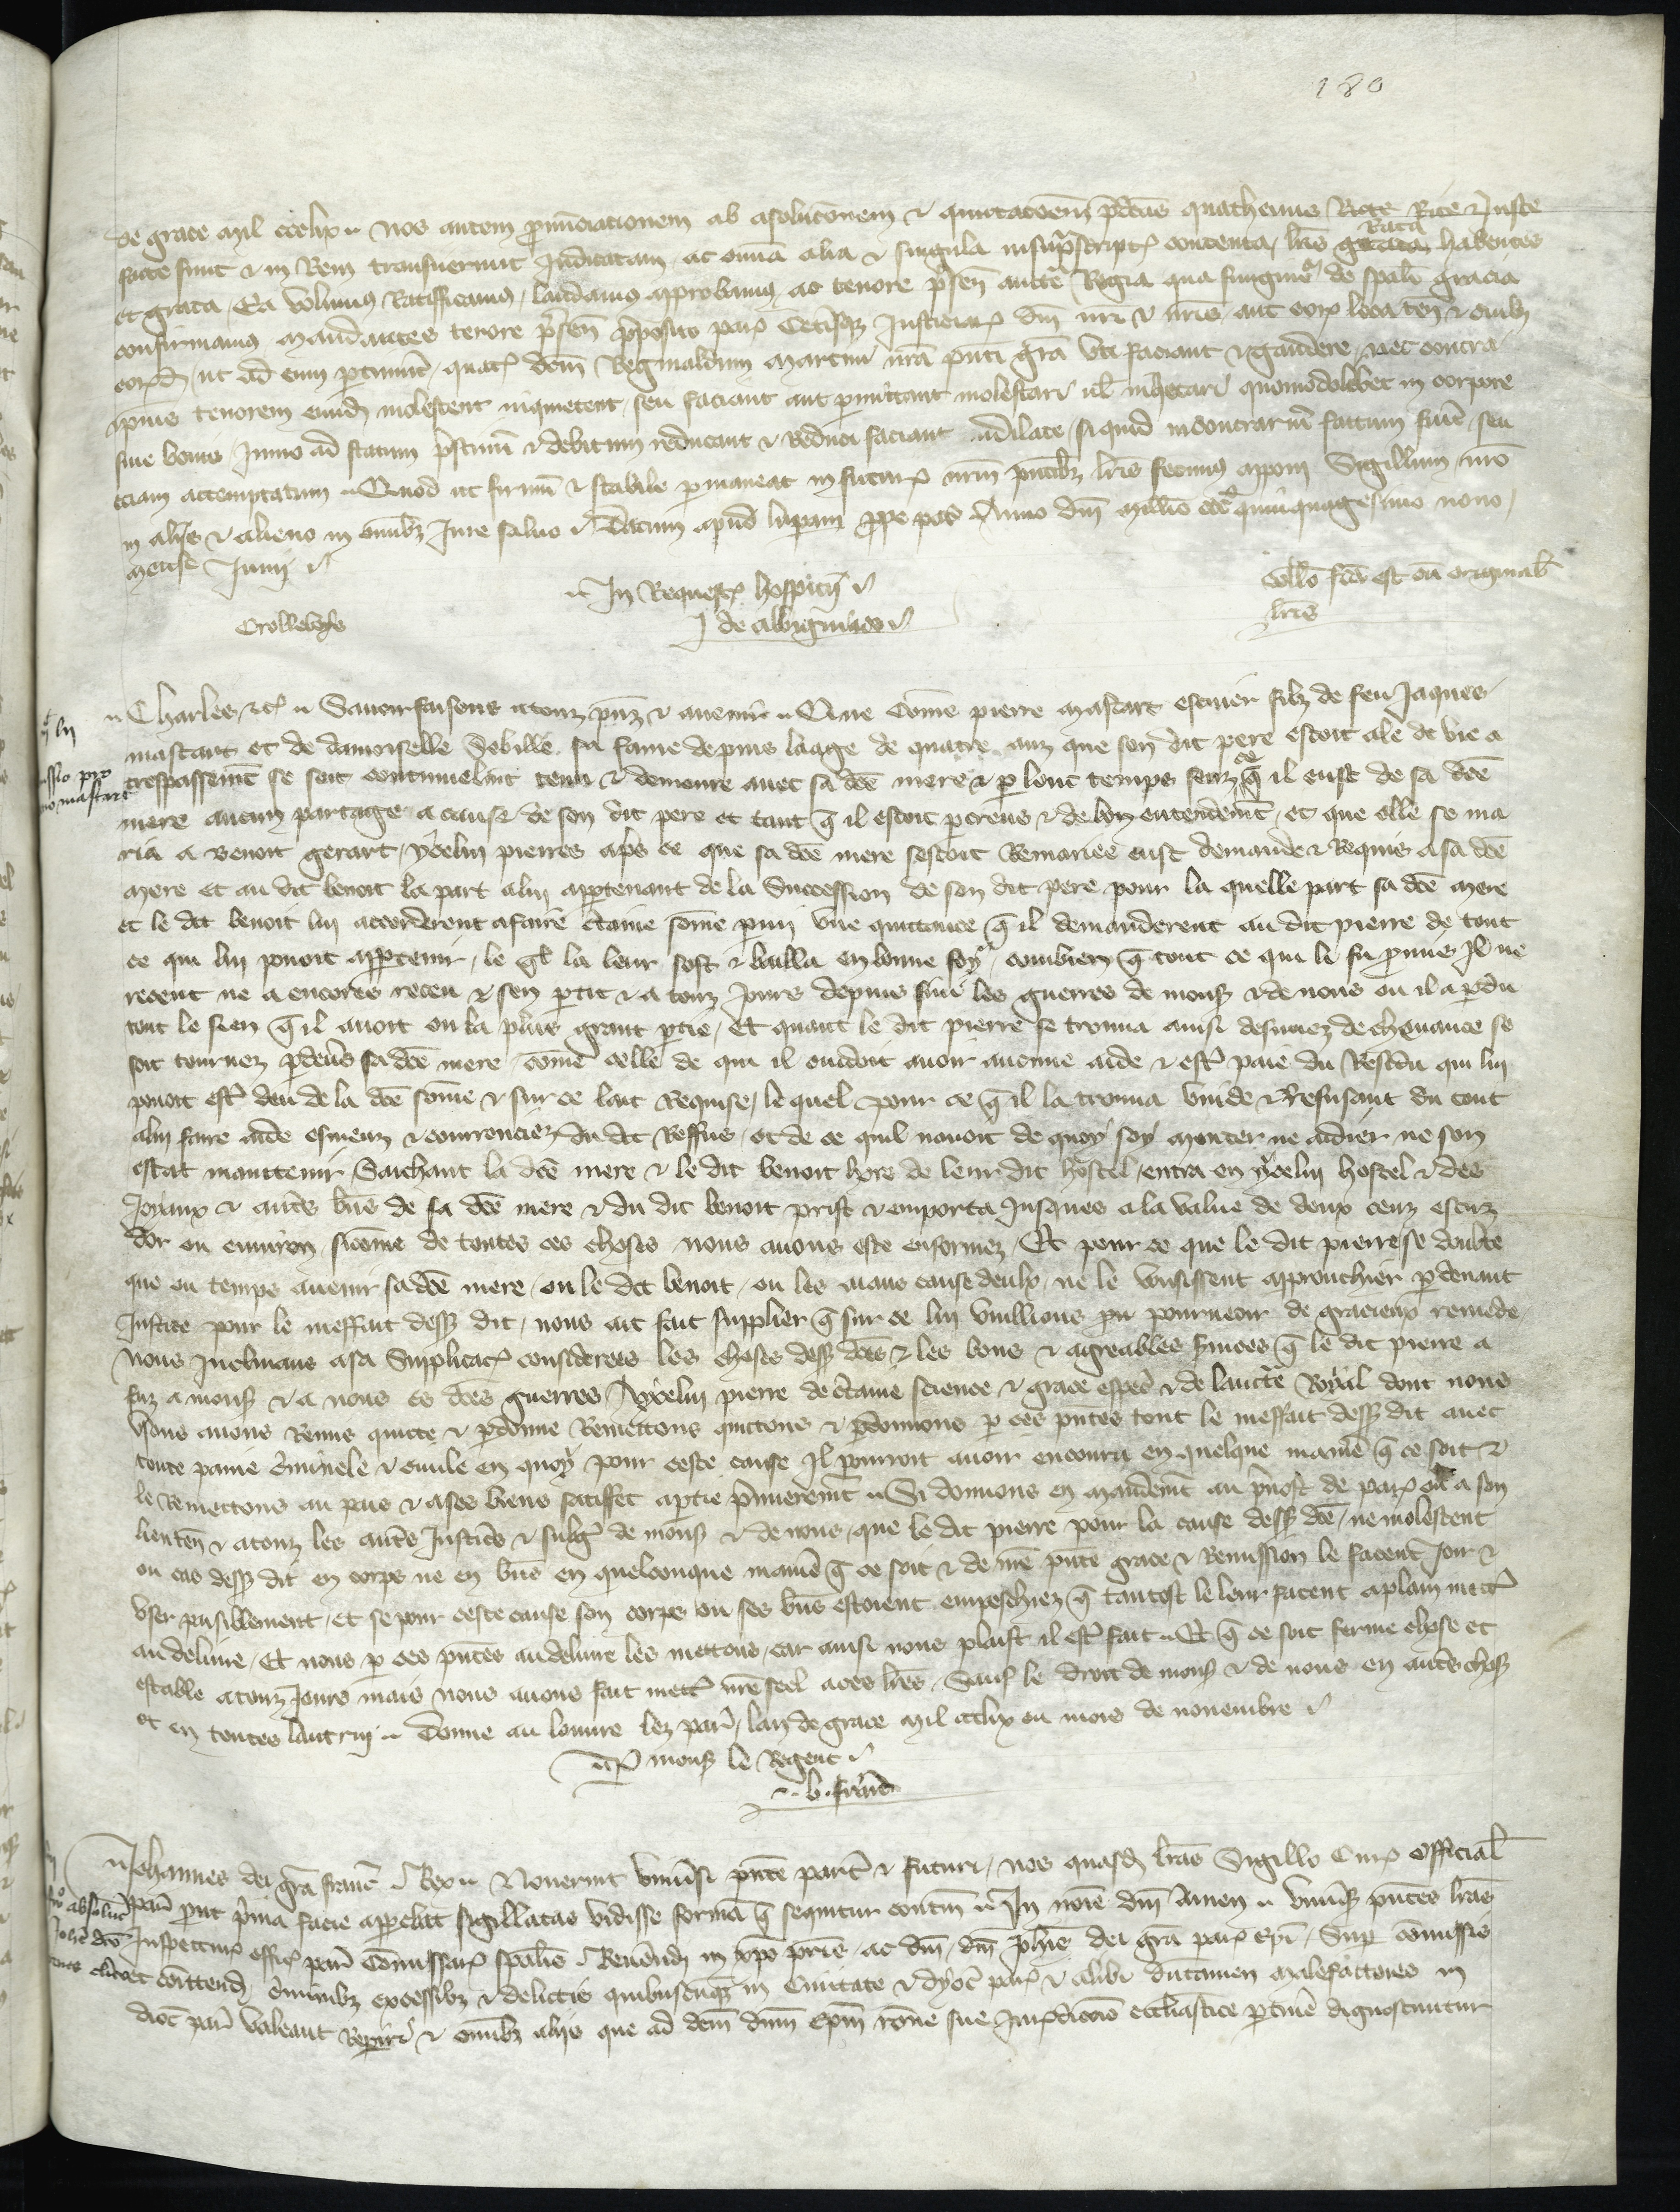 180
de grace mil ccclix Nos autem pronunciationem absolucionem et quittacionem predictas quathenus Rite et Juste
facte sunt et in Rem transiverunt Judicatam ac omnia alia et singula in suprascriptis contenta lris Rata habentes
et grata Ea volumus Ratifficamus laudamus aprobamus ac tenore psen aucte Regia qua fungimur de spali gracia
confirmamus mandantes tenore psen preposito paris Ceterisque Justiciariis dni nri et nris aut eorum loca ten et cuilibet
eorumdem ut ad eum ptinuit quatinus dcm Reginaldum Martini nra pnti gra uti faciant et gaudere nec contra
ipsius tenorem eundem molestent inquietent seu faciant aut permittant molestari vel inquietari quomodolibet in corpore
sive bonis Immo ad statum pristinum et debitum reducant et Reduci faciant indilate si quid in contrarium factum fuerit seu
eciam attemptatum Quod ut firmum et stabile permaneat in futurum nrm pntibz lris fecimus apponi Sigillum nro
in aliis et alieno in omnibz Jure salvo Datum apud luparam prope par Anno dni millo ccc quinquagesimo nono
mense Junii
In Requestis hospicii
Collo fca est cu originalibz
lris
J de Albigniaco
Charles etc Savoir faisons a touz pnz et avenir Que come pierre mastart escuier filz de feu Jaques
mastart et de damoiselle Sebille sa fame depuis laage de quatre anz que son dit pere estoit ale de vie a
trespassement se soit continuelmt tenu et demoure avec sa dce mere et par lonc temps senz ce q il eust de sa dce
mere aucun partage a cause de son dit pere et tant q il estoit percreus et de bon entendemt et que elle se ma
ria a Benoit gerart ycelui pierres apres ce que sa dce mere sestoit Remariee eust demande et Requis a sa dce
mere et au dit benoit la part a lui appartenant de la Succession de son dit pere pour la quelle part sa dce mere
et le dit benoit lui accorderent a faire ctaine some parmi une quittance q il demanderent au dit pierre de tout
ce qui lui povoit appartenir le ql la leur fist et bailla en bonne foy combien q tout ce qui le fu promis Il ne
receut ne a encores receu et sen parti et a touz jours depuis suui les guerres de mons et de nous ou il a perdu
tout le sien q il avoit ou la plus grant ptie Et quant le dit pierre se trouva ainsi desnuez de chevance se
soit tournez pardevers sa dce mere come celle de qui il cuidoit avoir aucune aide et estre paie du Residu qui lui
povoit estre deu de la dce some et sur ce lait Requise le quel pour ce q il la trouva vuide et Refusant du tout
a lui faire aide esmeuz et courrouciez du dit Reffus et de ce quil navoit de quoy soy monter ne aidier ne son
estat maintenir Saichant la dce mere et le dit benoit hors de leur dit hostel entra en ycelui hostel et des
Joyaux et autres biens de sa dce mere et du dit benoit prist et emporta Jusques a la value de deux cens escuz
dor ou environ si come de toutes ces choses nous avons este enformez Et pour ce que le dit pierre se doubte
que ou temps avenir sa dce mere ou le dit benoit ou les aians cause deulx ne le vousissent approuchier pardevant
Justice pour le meffait dessus dit nous ait fait supplier q sur ce lui vuillions pourveoir de gracieux remede
Nous Inclinans a sa Supplicacion considerees les choses dessus dces et les bons et agreables services q le dit pierre a
faiz a mons et a nous es dces guerres A ycelui pierre de certaine science et grace especial et de laucte Royal dont nous
Usons avons Remis quicte et pardonne Remettons quictons et pardonnons par ces pntes tout le meffait dessus dit avec
toute painne criminele et civile en quoy pour ceste cause Il pourroit avoir encouru en quelque maniere q ce soit et
le Remettons au pais et a ses biens satisffet a partie premierement Si donnons en mandemt au prevost de paris ou a son
lieuten et a touz les autres Justiciers et subgez de mons et de nous que le dit pierre pour la cause dessus dce ne molestent
ou cas dessus dit en corps ne en biens en quelconque maniere q ce soit et de nre pnte grace et Remission le facent Joir et
user paisiblement et se pour ceste cause son corps ou ses biens estoient empeschiez q tantost le leur facent a plain mettre
au delivre Et nous par ces pntes au delivre les mettons car ainsi nous plaist il estre fait Et q ce soit ferme chose et
estable a touz Jours mais nous avons fait mettre nre seel a ces lres Sauf le droit de mons et de nous en autres choses
et en toutes lautrui Donne au louvre lez paris lan de grace mil ccclix ou mois de novembre
Par mons le Regent
Johannes dei gra franc Rex Noverint universi pntes pariter et futuri nos quasdam lras Sigillo Curie Officialis
paris prout prima facie apparebat sigillatas vidisse formam q sequitur continentes In noie dni Amen Universis pntes lras
Inspecturis offic paris Commissarius spalis Reverendi in xpo pris ac dni dni Johis dei gra paris epi Super comissis
et comittendis criminibz excessibz et delictis quibuscunqz in Civitate et dyoc paris et alibi dumtamen malefactores in
dioc paris valeant Reperiri et omnibz aliis que ad dcm dnm epm rone sue Jurisdictionis ecclesiastice pertinere dignoscuntur